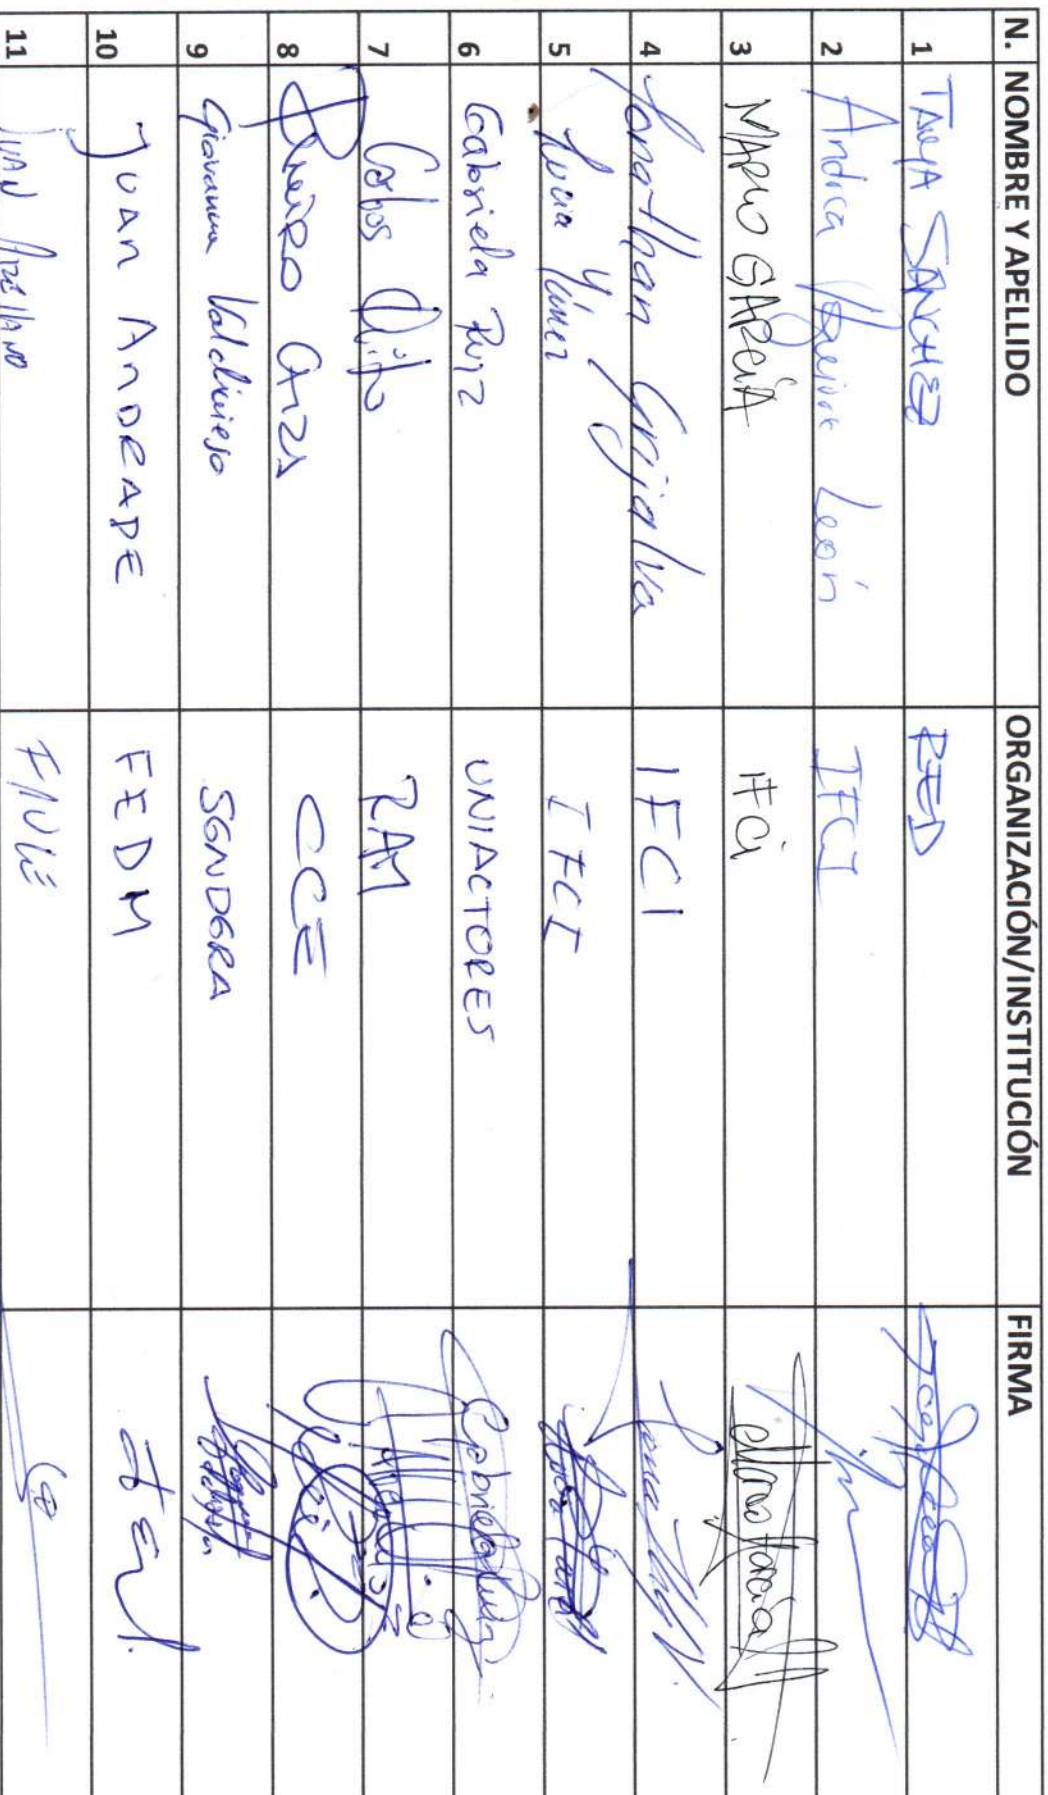 N. NOMBRE Y APELLIDO ORGANIZACIÓN/INSTITUCIÓN FIRMA
1 TANYA SANCHEZ RED
2 Andrea León IFCI
3 MARIO GARCÍA IFCi
4 Jonathan Grijalva IFCI
5 Lucía Yánez IFCI
6 Gabriela Ruiz UNIACTORES Gabriela Ruiz
7 Carlos Quito RAM
8 CCE
9 Giovanna Valdivieso SENDERA
10 JUAN ANDRADE FEDM
11 JUAN Arellano